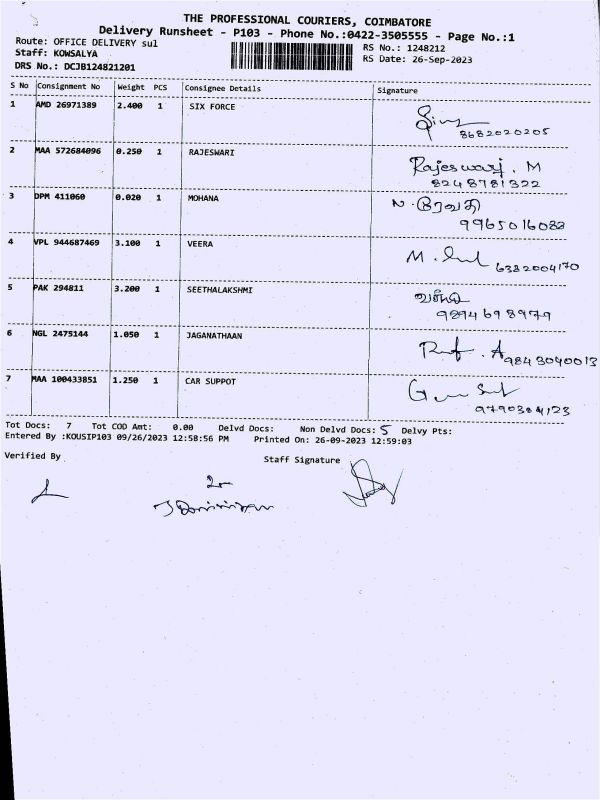 THE PROFESSIONAL COURIERS, COIMBATORE
Delivery Runsheet - P103 - Phone No.:0422-3505555 - Page No.:1
Route: OFFICE DELIVERY sul RS No.: 1248212
Staff: KOWSALYA RS Date: 26-Sep-2023
DRS No.: DCJB124821201
S No Consignment No Weight PCS Consignee Details Signature
1 AMD 26971389 2.400 1 SIX FORCE
8682020205
2 MAA 572684096 0.250 1 RAJESWARI Rajeswari. M
8248781322
3 DPM 411060 0.020 1 MOHANA N. ரேவதி
9965016082
4 VPL 944687469 3.100 1 VEERA M.
6382004170
5 PAK 294811 3.200 1 SEETHALAKSHMI
9894698979
6 NGL 2475144 1.050 1 JAGANATHAAN
9843040013
7 MAA 100433851 1.250 1 CAR SUPPOT
9790384123
Tot Docs: 7 Tot COD Amt: 0.00 Delvd Docs: Non Delvd Docs: 5 Delvy Pts:
Entered By :KOUSIP103 09/26/2023 12:58:56 PM Printed On: 26-09-2023 12:59:03
Verified By Staff Signature